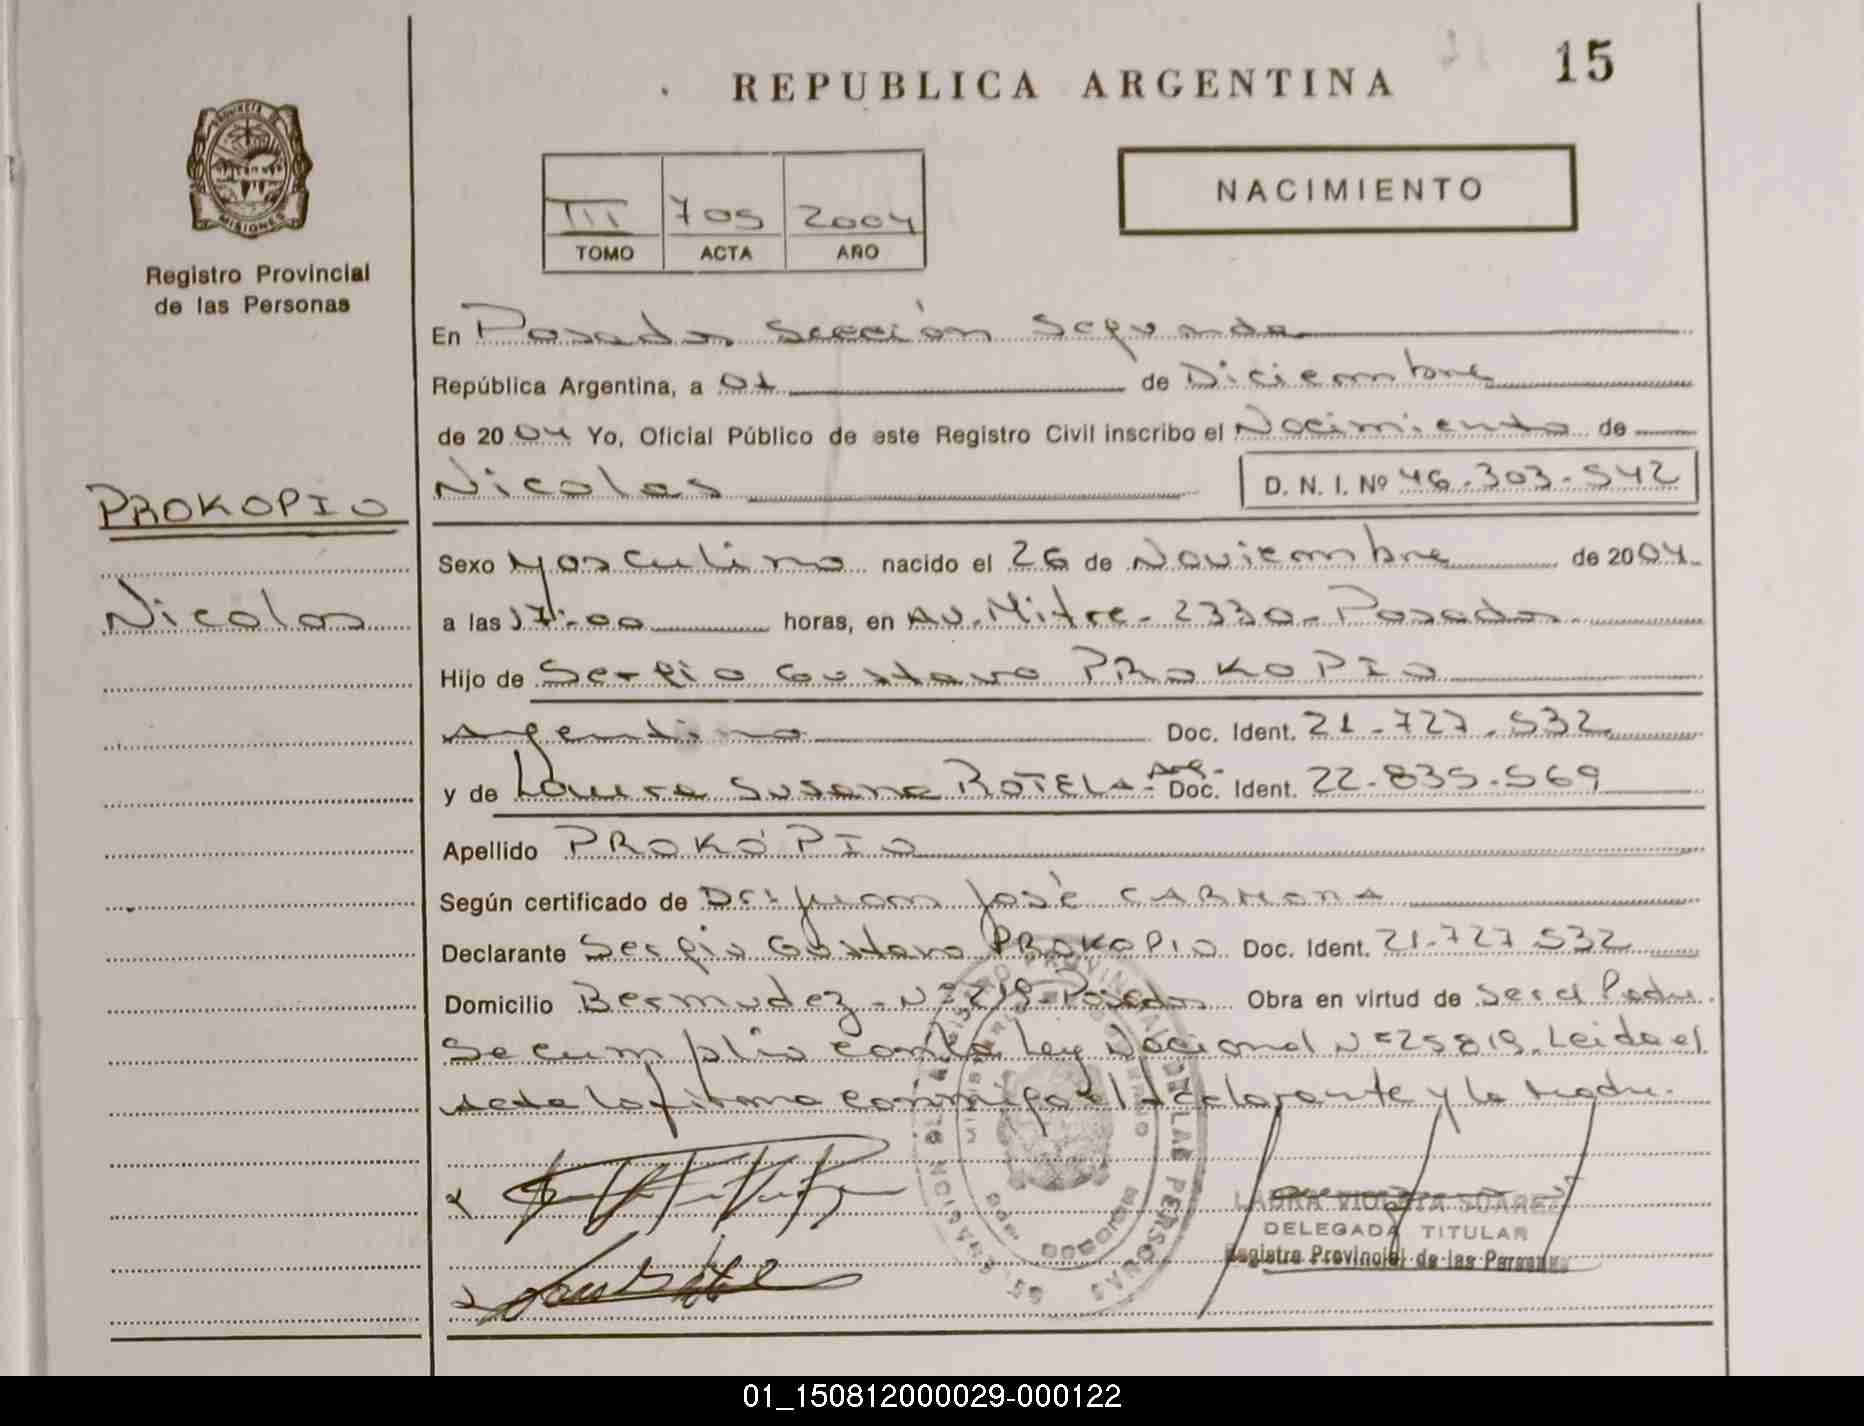 15
REPUBLICA ARGENTINA
NACIMIENTO
PROVINCIA DE
MISIONES
Registro Provincial
de las Personas
III 705 2004
TOMO ACTA AÑO
En Posadas Sección Segunda
República Argentina, a 01 de Diciembre
de 2004 Yo, Oficial Público de este Registro Civil inscribo el Nacimiento de
PROKOPIO
Nicolas
Nicolas D. N. I. Nº 46.303.542
Sexo Masculino nacido el 26 de Noviembre de 2004
a las 17:00 horas, en Av. Mitre - 2330 - Posadas
Hijo de Sergio Gustavo PROKOPIO
Argentino Doc. Ident. 21.727.532
y de Laura Susana ROTELA - Arg. - Doc. Ident. 22.835.569
Apellido PROKOPIO
Según certificado de Dr: Juan José CARMONA
Declarante Sergio Gustavo PROKOPIO Doc. Ident. 21.727.532
Domicilio Bermudez - Nº 219 - Posadas Obra en virtud de Ser el Padre.
Se cumplio con la Ley Nacional Nº 25819. Leida el
acta la firma conmigo el declarante y la madre.
LAURA VIOLETA SUAREZ
DELEGADA TITULAR
Registro Provincial de las Personas
01_150812000029-000122